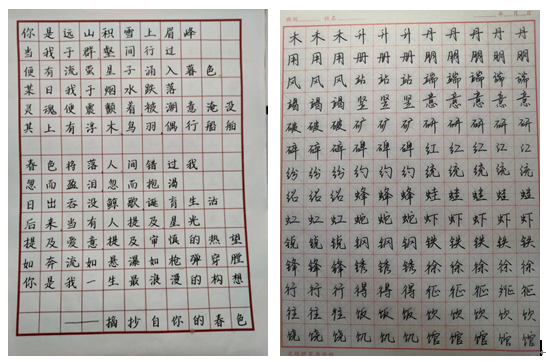 你是远山积雪上眉峰
当我于群壑间行过
便有流萤星子涌入暮色
某日我于烟水跌落
灵魂便震颤着被意淹没
其上有浮木鸟羽偶行船舶
春色将落人间错过我
忽而盈泪忽而抱渴
日出吞没鲸歌诞育生活
后来当有人提及星光
提及爱意提及审慎的热望
如奔流如悬瀑如枪弹穿膛
你是我一生最浪漫的构想
——摘抄自你的春色
木木木升升升丹丹丹丹丹
用用用册册册朋朋朋朋朋
风风风站站站端端端端端
竭竭竭竖竖竖意意意意意
破破破矿矿矿研研研研研
碎碎碎碑碑碑红红红红红
纷纷纷约约约统统统统统
绍绍绍蜂蜂蜂蛙蛙蛙蛙蛙
虹虹虹蛇蛇蛇虾虾虾虾虾
铙铙铙钢钢钢铁铁铁铁铁
锋锋锋锈锈锈徐徐徐徐徐
行行行得得得征征征征征
往往往饭饭饭饮饮饮饮饮
饶饶饶饥饥饥馆馆馆馆馆